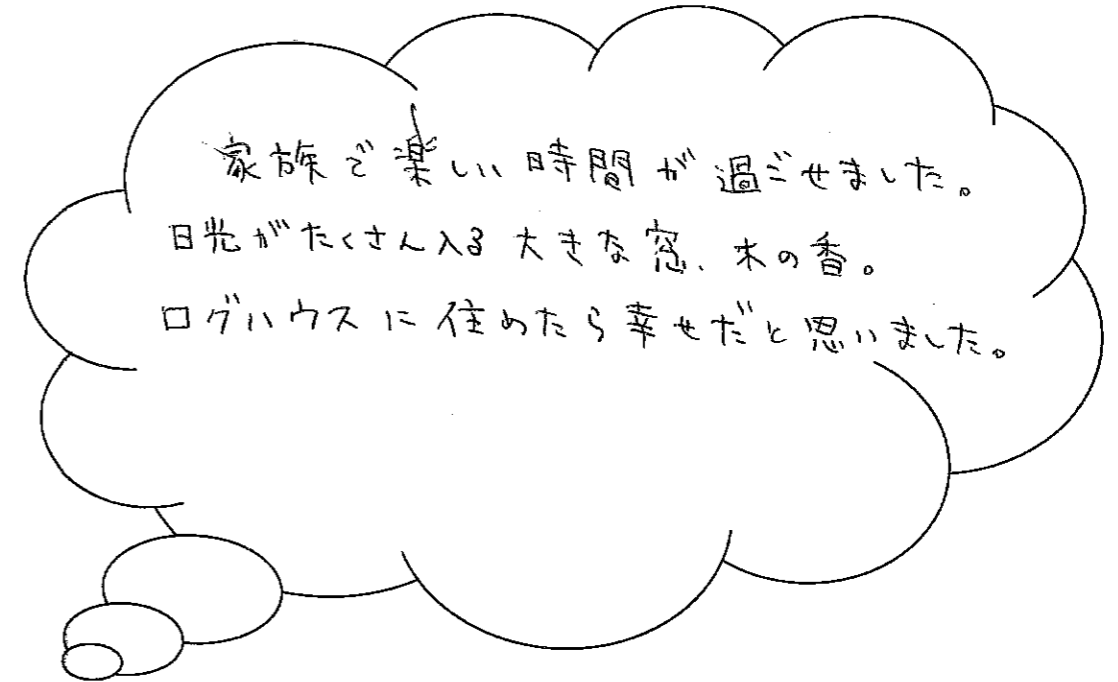 家族で楽しい時間が過ごせました。
日光がたくさん入る大きな窓、木の香。
ログハウスに住めたら幸せだと思いました。